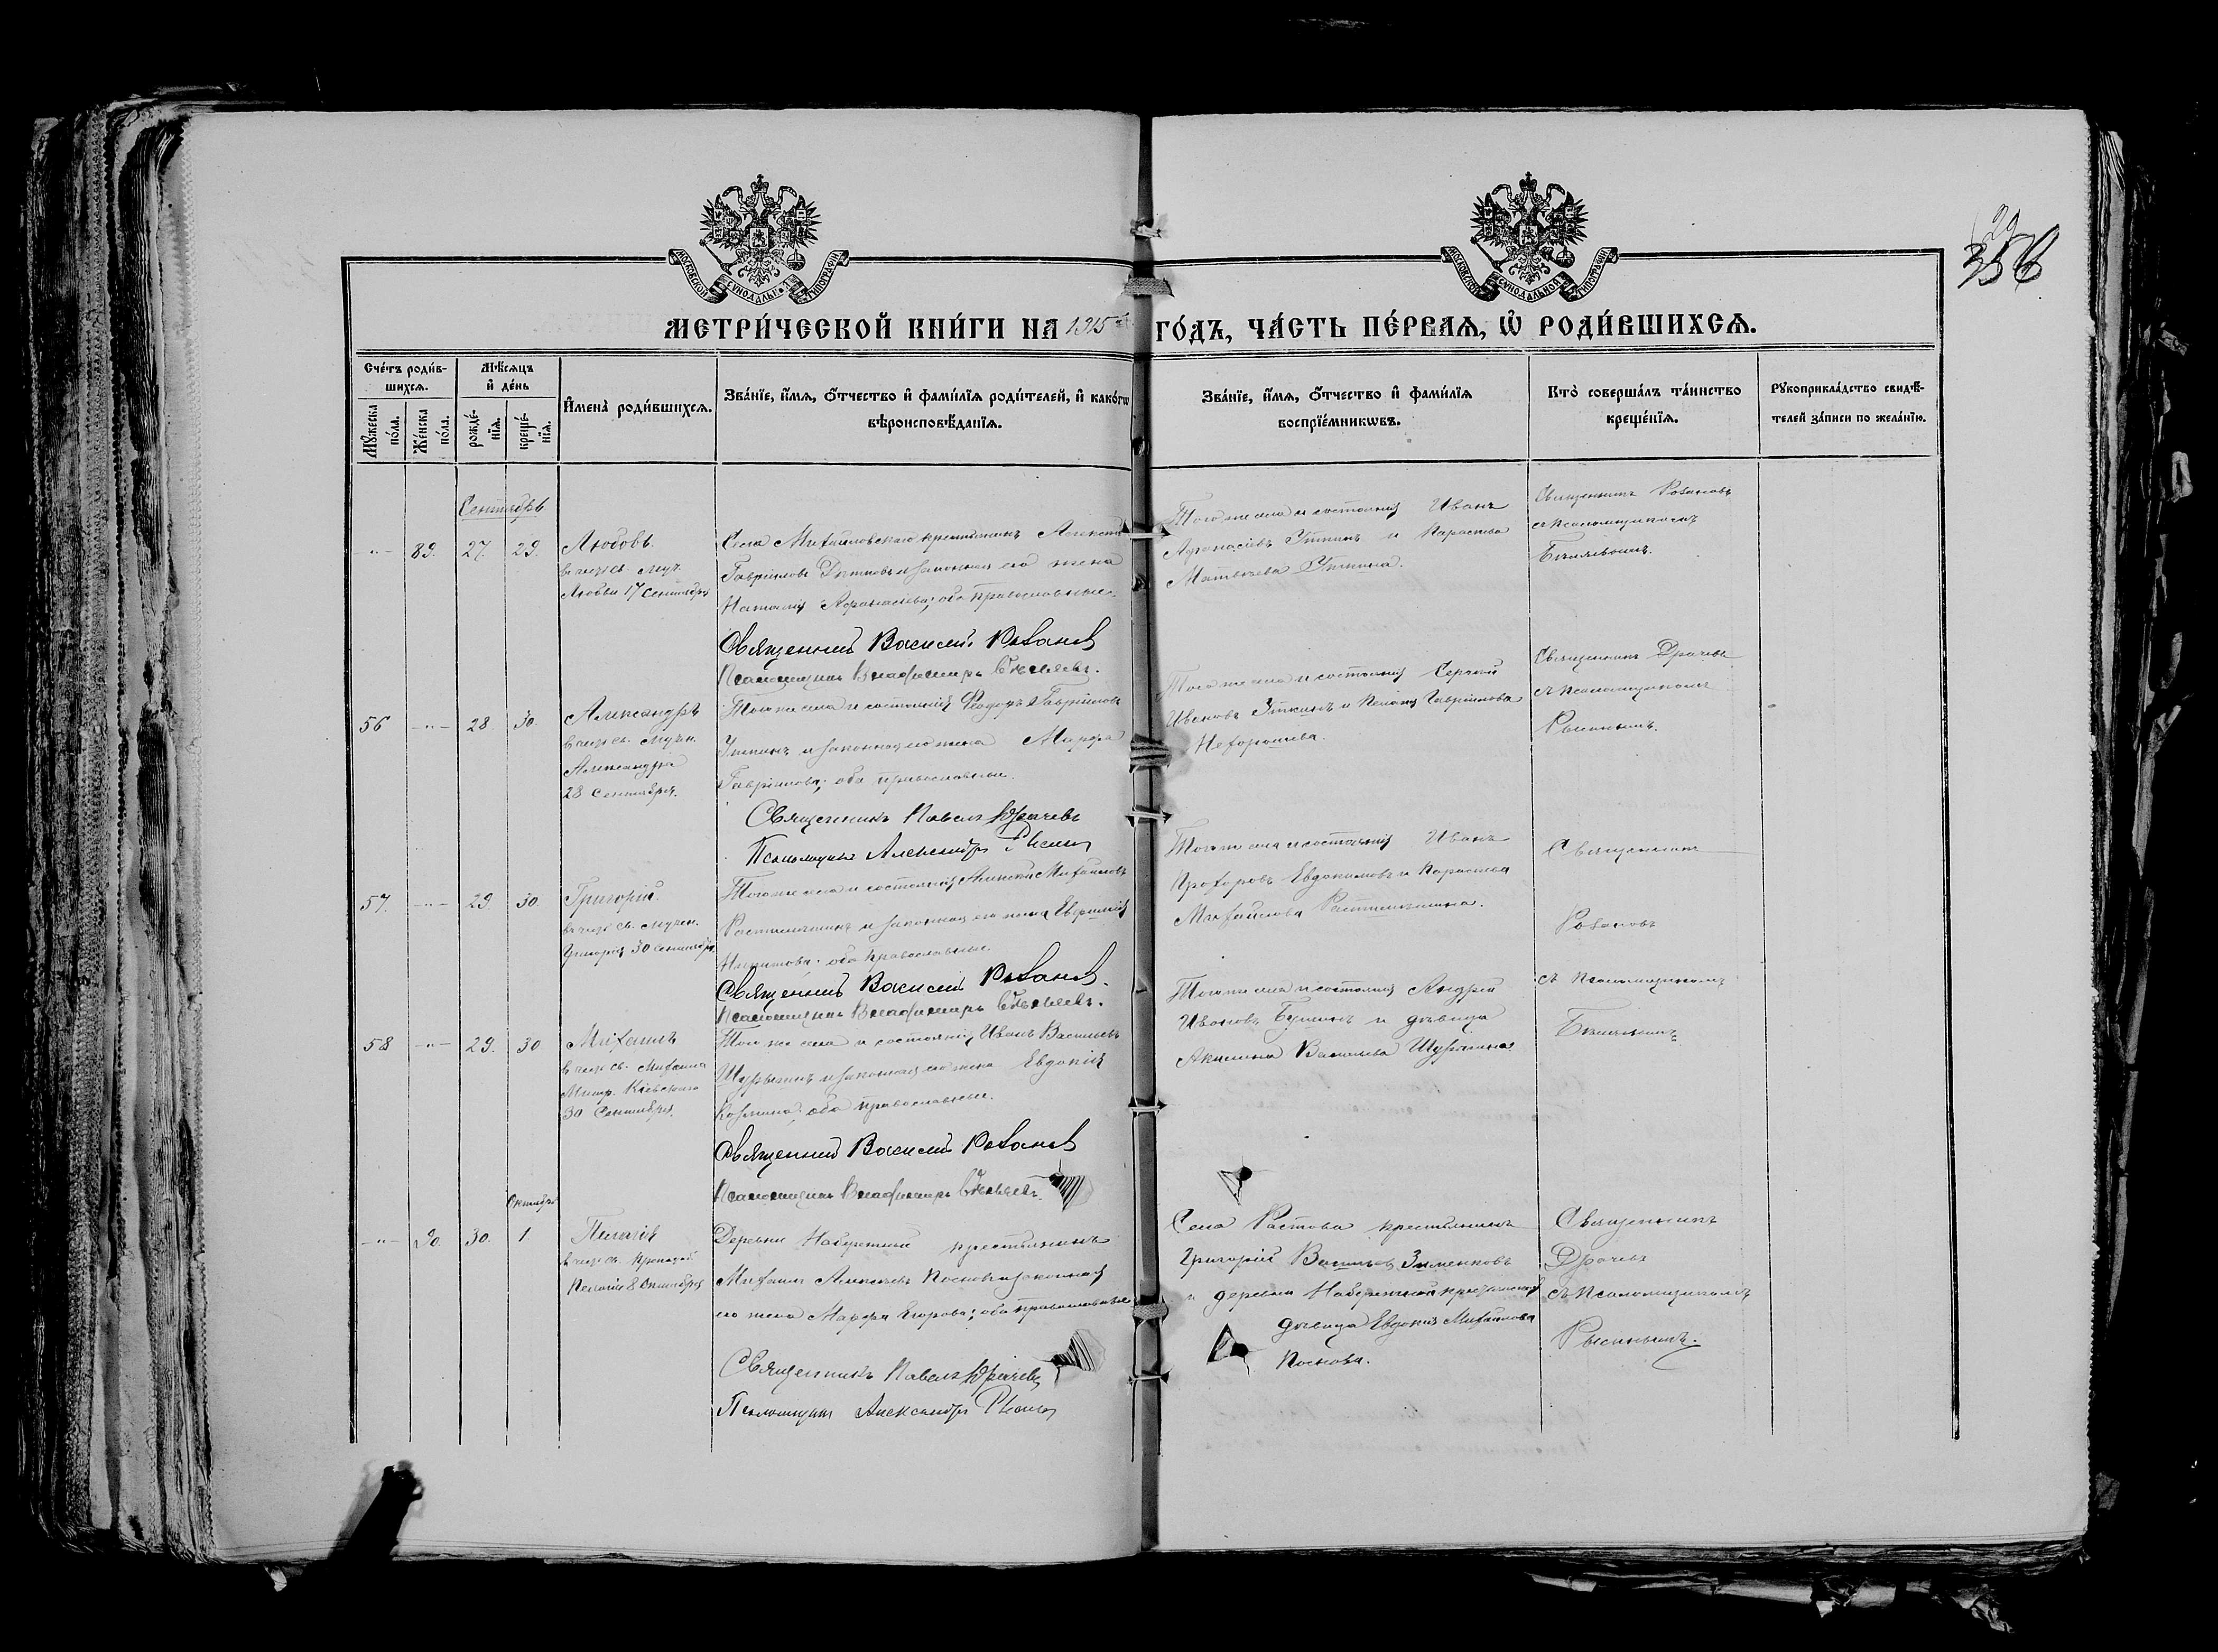 29
356
МОСКОВСКОЙ СѴНОДАЛЬНОЙ ТИПОГРАФІИ
МОСКОВСКОЙ СѴНОДАЛЬНОЙ ТИПОГРАФІИ
МЕТРИ́ЧЕСКОЙ КНИ́ГИ НА 1915 ГО́ДЪ, ЧА́СТЬ ПЕ́РВАѦ, Ѽ РОДИ́ВШИХСѦ.
Сче́тъ роди́в-
шихсѧ.
Мꙋ́жеска
по́ла.
Же́нска
по́ла.
Мѣ́сѧцъ
и҆ де́нь
рожде́-
нїѧ.
креще́-
нїѧ.
И҆мена̀ роди́вшихсѧ.
Зва́нїе, и҆́мѧ, ѻ҆́тчество и҆ фами́лїѧ роди́телей, и҆ како́гѡ
вѣроисповѣ́данїѧ.
Зва́нїе, и҆́мѧ, ѻ҆́тчество и҆ фами́лїѧ
воспрїе́мникѡвъ.
Кто̀ соверша́лъ та́инство
креще́нїѧ.
Рꙋкоприкла́дство свидѣ́-
телей за́писи по жела́нїю.
Сентябрь
-"- 89. 27. 29.
Любовь.
в честь св. муч.
Любви 17 Сентября
Села Михайловскаго крестьянинъ Алексѣй
Гавріиловъ и законная его жена
Наталія Аѳанасіева; оба православные.
Священникъ Василій Розановъ
Псаломщикъ Владиміръ Бѣляевъ.
Того же села и состоянія Иванъ
Аѳанасіевъ и Параскева
Матвѣева
Священникъ Розановъ
съ Псаломщикомъ
Бѣляевымъ.
56 -"- 28. 30.
Александръ
в честь св. мучен.
Александра
28 Сентября.
Того же села и состоянія Ѳеодоръ Гавріиловъ
и законная его жена Марѳа
Гавріилова; оба православные.
Священникъ Павелъ Драчевъ
Псаломщикъ Александръ Рысинъ
Того же села и состоянія Сергѣй
Ивановъ и Пелагія Гавріилова
Нехорошева.
Священникъ Драчевъ
съ Псаломщикомъ
Рысинымъ.
57. -"- 29 30.
Григорій.
в честь св. мучен.
Григорія 30 Сентября.
Того же села и состоянія Алексѣй Михайловъ
и законная его жена Евфимія
Никитова; оба православные.
Священникъ Василій Розановъ.
Псаломщикъ Владиміръ Бѣляевъ.
Того же села и состоянія Иванъ
Прохоровъ Евдокимовъ и Параскева
Михайлова
Священникъ
Розановъ
съ Псаломщикомъ
Бѣляевымъ
58 -"- 29. 30
Михаилъ
в честь св. Михаила
Митр. Кіевскаго
30 Сентября.
Того же села и состоянія Иванъ Васильевъ
и законная его жена Евдокія
Козмина; оба православные.
Священникъ Василій Розановъ
Псаломщикъ Владиміръ Бѣляевъ.
Того же села и состоянія Андрей
Ивановъ и дѣвица
Акилина Васильева
Октябрь
-"- 90. 30. 1.
Пелагія
в честь св. преподоб.
Пелагіи 8 Октября
Деревни крестьянинъ
Михаилъ Алексѣевъ Посновъ и законная
его жена Марѳа Егорова; оба православные
Священникъ Павелъ Драчевъ
Псаломщикъ Александръ Рысинъ
Села Растова крестьянинъ
Григорій Васильевъ Зименковъ
и деревни крестьянская
дѣвица Евдокія Михайлова
Поснова.
Священникъ
Драчевъ
съ Псаломщикомъ
Рысинымъ.